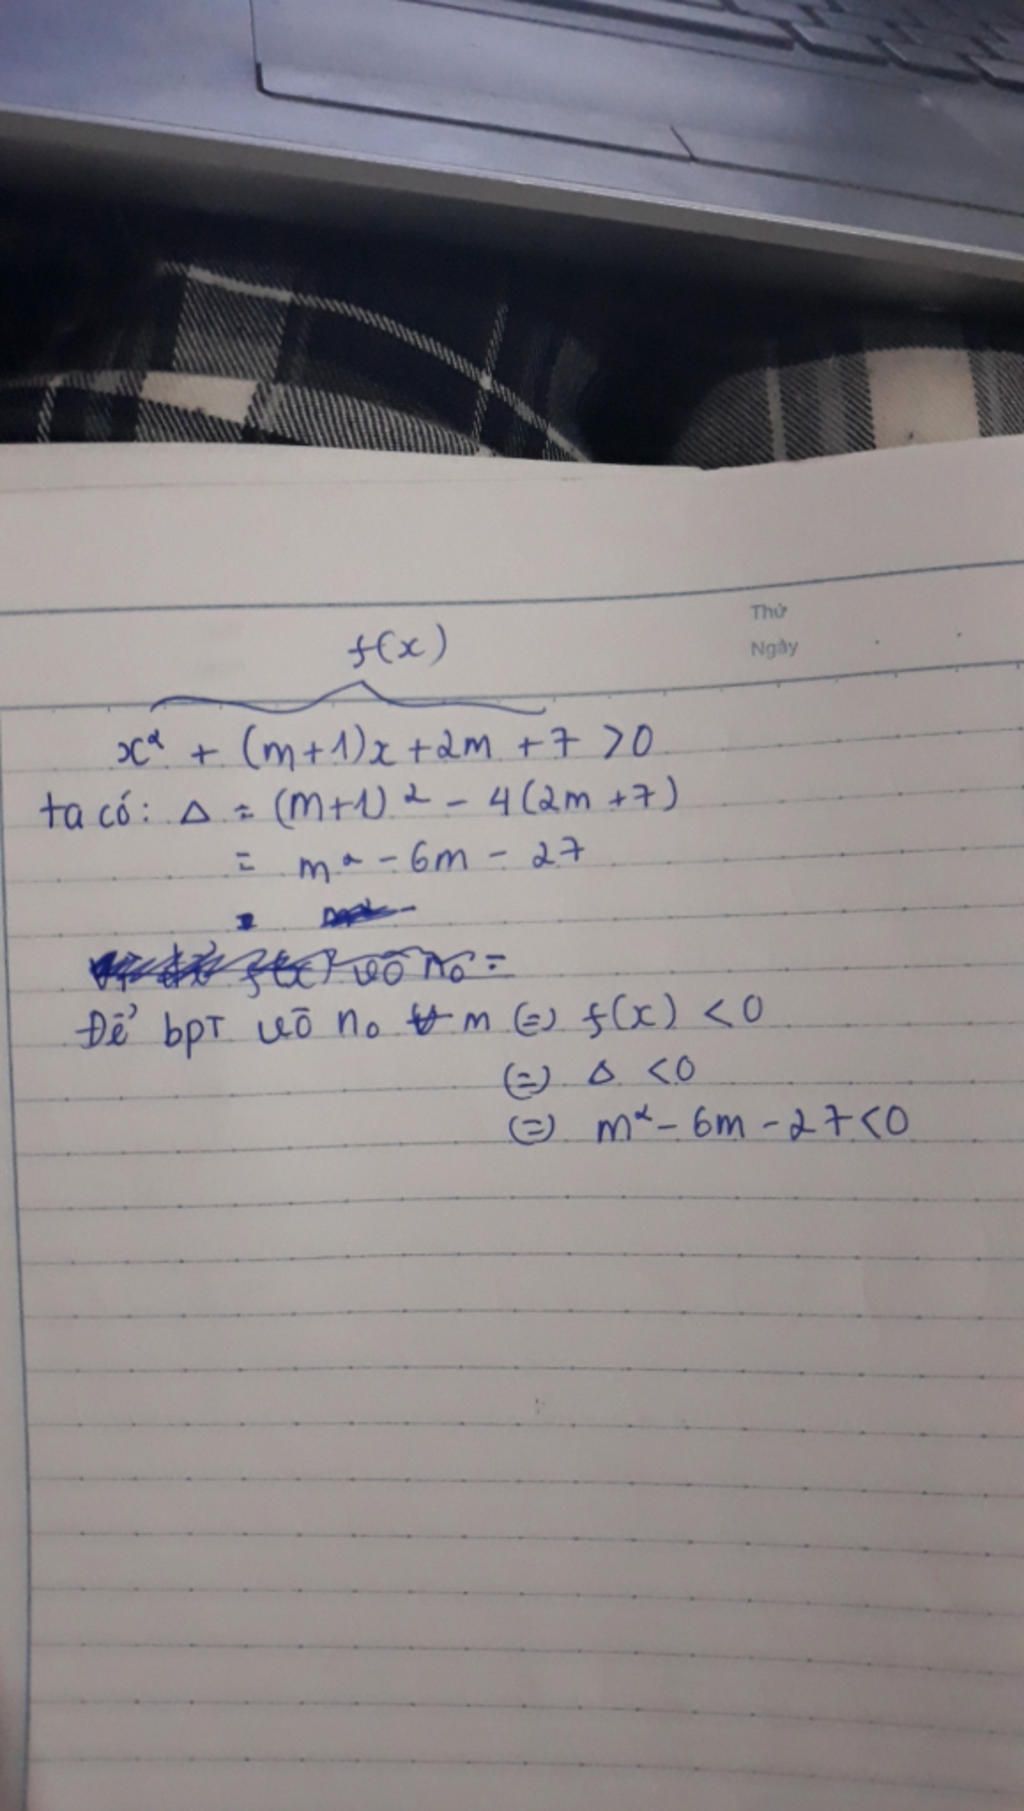 Thứ
Ngày
f(x)
x² + (m+1)x + 2m + 7 > 0
ta có: Δ = (m+1)² - 4(2m+7)
= m² - 6m - 27
vô n₀ =
Để bpT vô n₀ ∀ m (=) f(x) < 0
(=) Δ < 0
(=) m² - 6m - 27 < 0